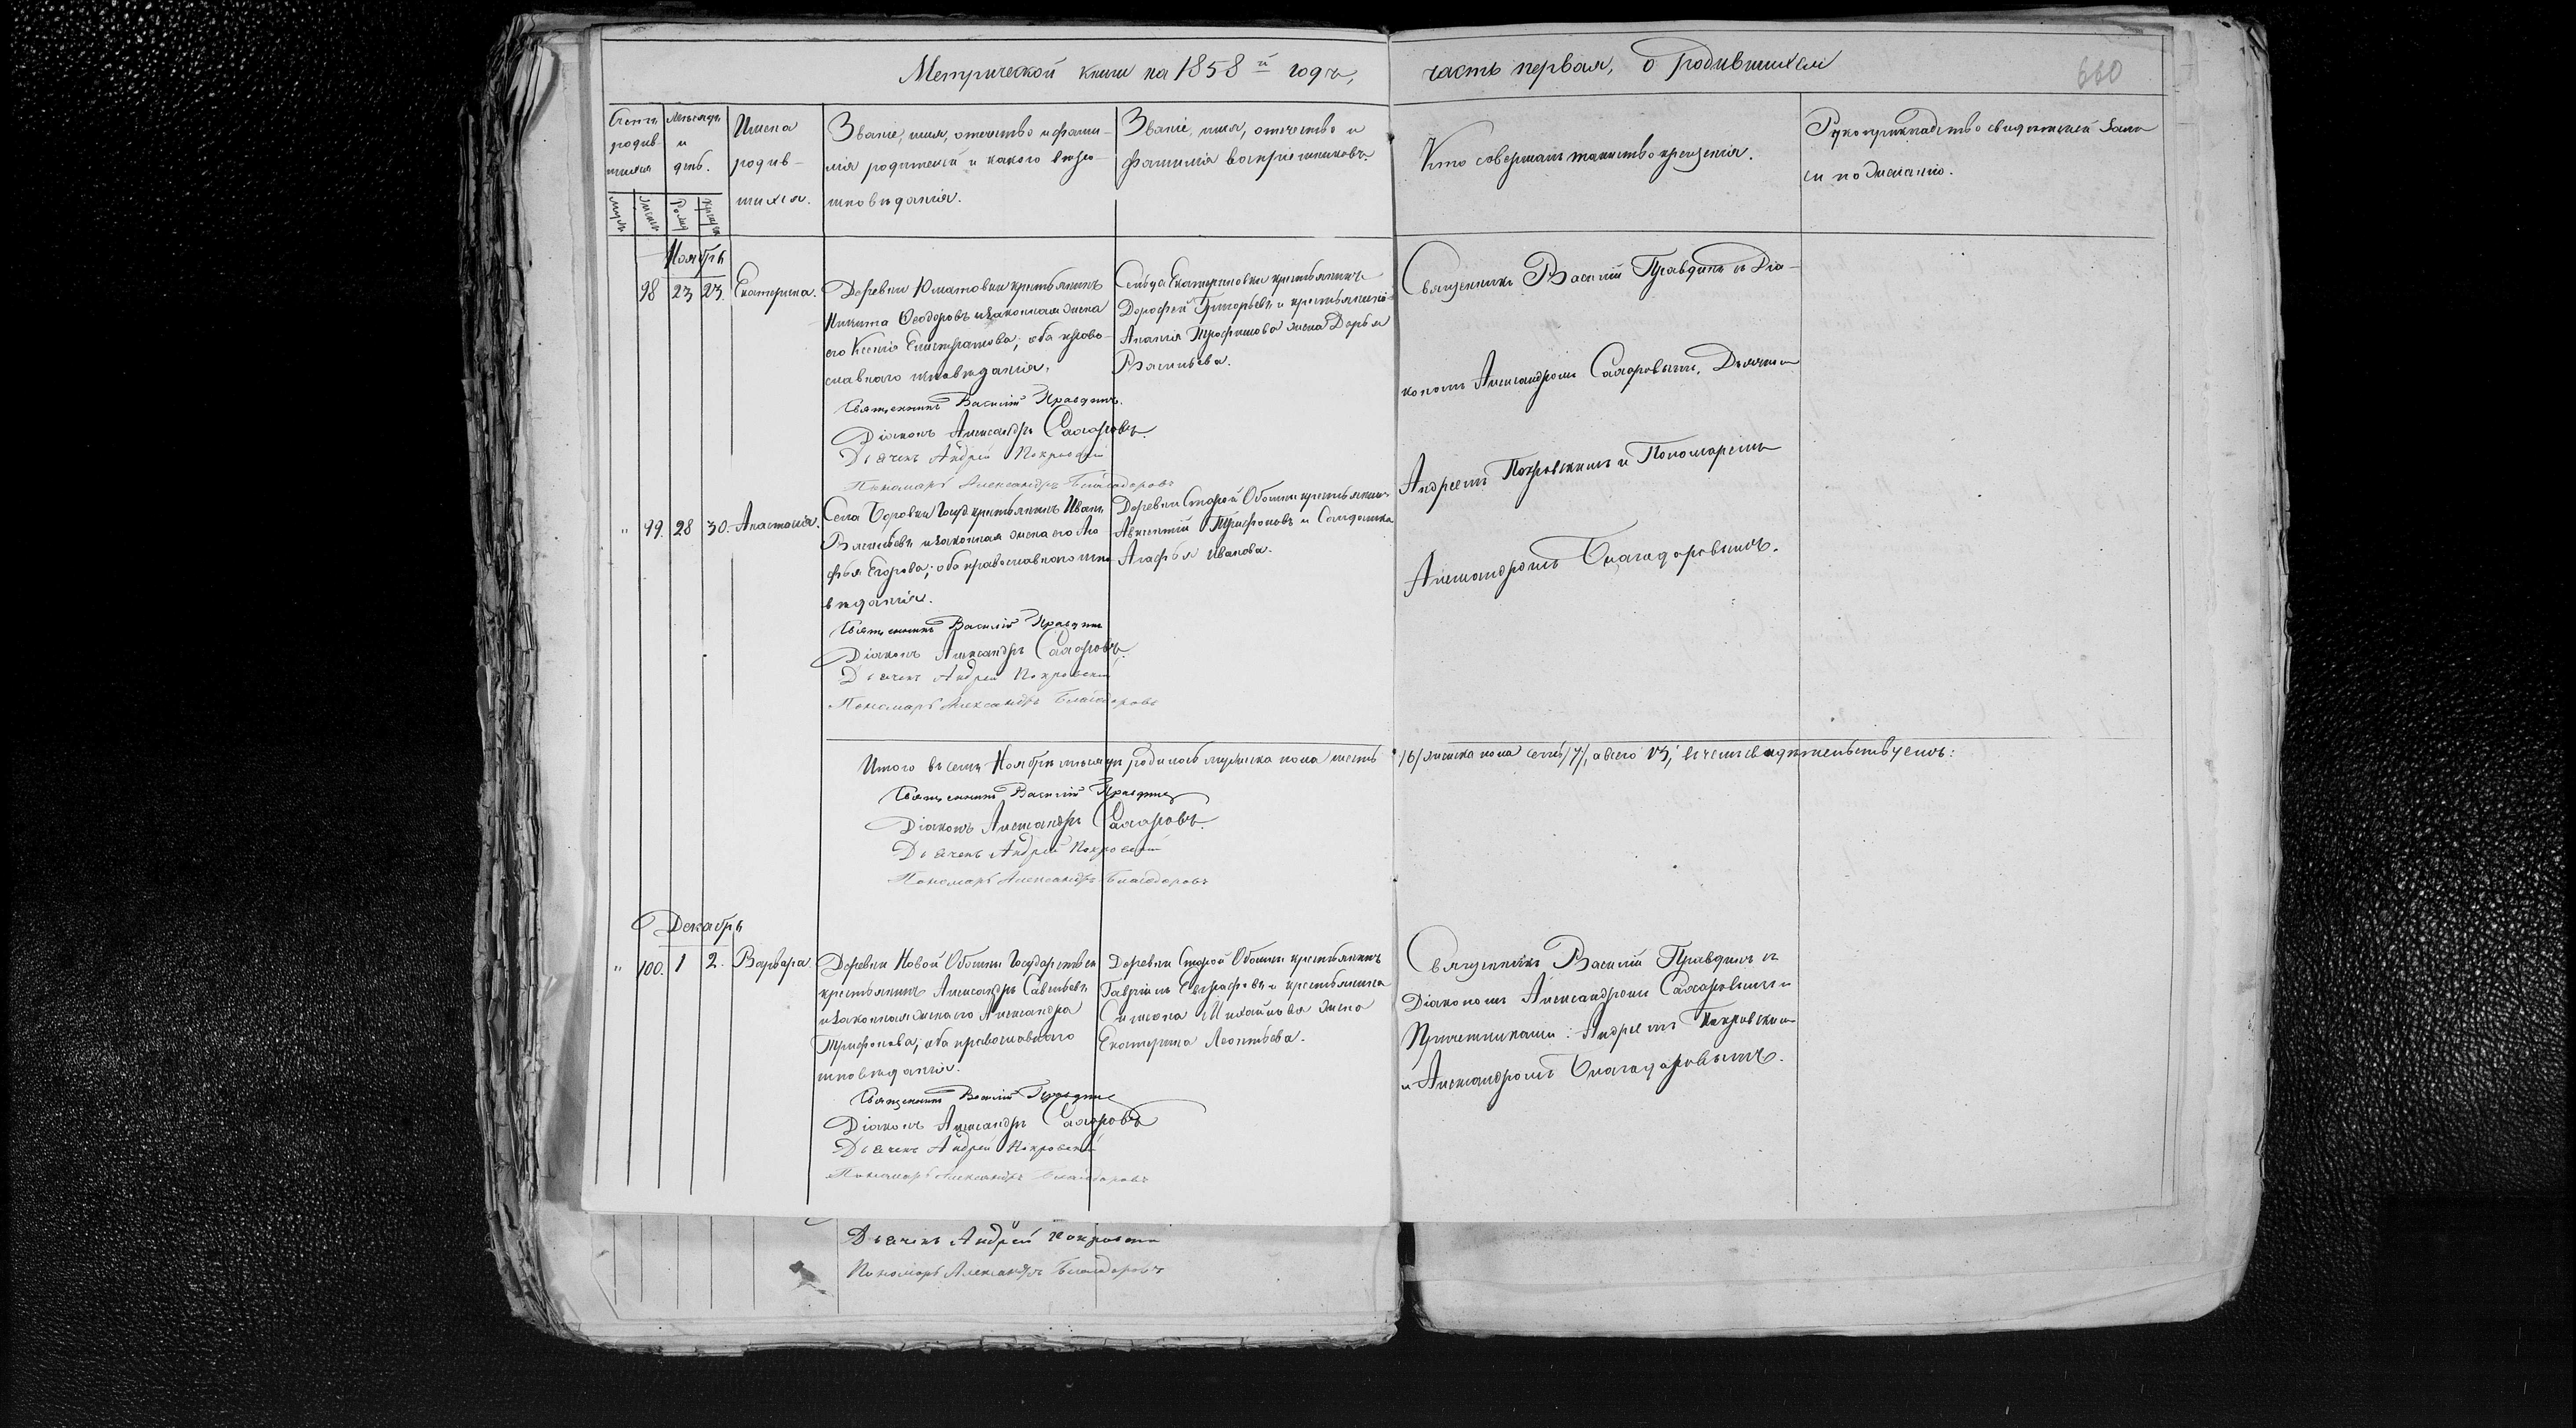 Метрической книги на 1858й годъ, часть первая, о родившихся
660
Счетъ родив-
шихся
Мѣсяцъ
и
день.
Имена
родив-
шихся.
Званіе, имя, отчество и фами-
лія родителей и какого вѣро-
исповѣданія.
Званіе, имя, отчество и
фамилія воспріемниковъ.
Кто совершалъ таинство крещенія.
Рукоприкладство свидѣтелей записи
по желанію.
Ноябрь
98 23 23. Екатерина.
Деревни Юматовки крестьянинъ
Никита Ѳеодоровъ и законная жена
его Ксенія Евстратова; оба право-
славнаго исповѣданія.
Священникъ Василій Правдинъ.
Діаконъ Александръ Сахаровъ.
Дьячекъ Андрей Покровскій
Пономарь Александръ Благодаровъ
Сельца Екатериновки крестьянинъ
Дорофей Григорьевъ и крестьянина
Анания Трофимова жена Дарья
Васильева.
Священникъ Василій Правдинъ съ Діа-
кономъ Александромъ Сахаровымъ, Дьячкомъ
Андреемъ Покровскимъ и Пономаремъ
Александромъ Благодаровымъ.
" 99. 28 30. Анастасія.
Села Боровки Госуд. крестьянинъ Иванъ
Васильевъ и законная жена его Ага-
фья Егорова; оба православнаго испо-
вѣданія.
Священникъ Василій Правдинъ
Діаконъ Александръ Сахаровъ.
Дьячекъ Андрей Покровскій
Пономарь Александръ Благодаровъ
Деревни Старой Обошни крестьянинъ
Авксентій Трифоновъ и Солдатка
Агафья Иванова.
Итого въ семъ Ноябрѣ мѣсяцѣ родилось мужеска пола шесть /6/ женска пола семь /7/, а всего 13; въ чемъ свидѣтельствуемъ:
Священникъ Василій Правдинъ
Діаконъ Александръ Сахаровъ.
Дьячекъ Андрей Покровскій
Пономарь Александръ Благодаровъ
Декабрь
" 100. 1 2. Варвара.
Деревни Новой Обошни Государствен
крестьянинъ Александръ Савельевъ
и законная жена его Александра
Трифонова; оба православнаго
исповѣданія.
Священникъ Василій Правдинъ
Діаконъ Александръ Сахаровъ
Дьячекъ Андрей Покровскій
Пономарь Александръ Благодаровъ
Деревни Старой Обошни крестьянинъ
Гавріилъ Евграфовъ и крестьянина
Симеона Михайлова жена
Екатерина Леонтьева.
Священникъ Василій Правдинъ съ
Діакономъ Александромъ Сахаровымъ и
Причетниками: Андреемъ Покровскимъ
и Александромъ Благодаровымъ.
Дьячекъ Андрей Покровскій
Пономарь Александръ Благодаровъ